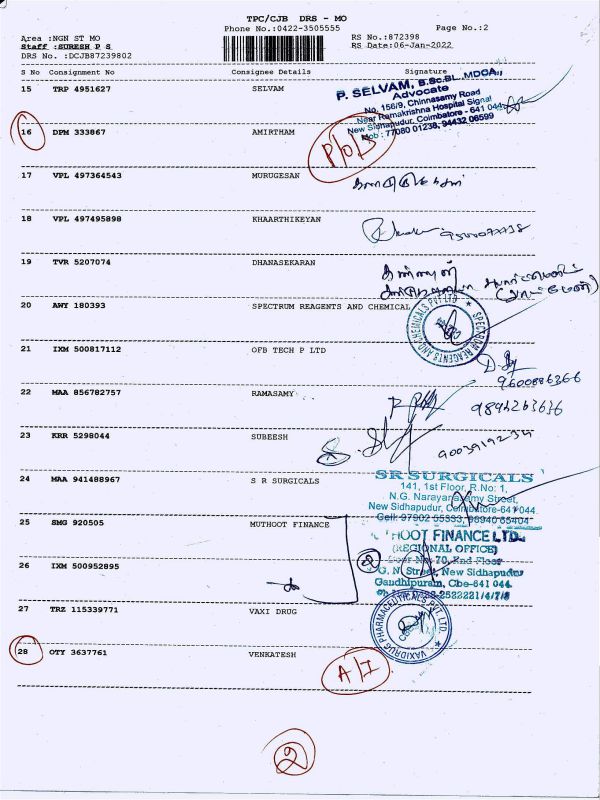 TPC/CJB DRS - MO
Phone No.:0422-3505555
Page No.:2
Area :NGN ST MO
RS No.:872398
Staff :SURESH P S
RS Date:06-Jan-2022
DRS No. :DCJB87239802
S No Consignment No Consignee Details Signature
15 TRP 4951627 SELVAM
P. SELVAM, B.Sc.BL.,MDCA.,
Advocate
No. 156/9, Chinnasamy Road
Near Ramakrishna Hospital Signal
New Sidhapudur, Coimbatore - 641 044.
Mob : 77080 01238, 94432 06599
16 DPM 333867 AMIRTHAM
P/O/S
17 VPL 497364543 MURUGESAN
18 VPL 497495898 KHAARTHIKEYAN
19 TVR 5207074 DHANASEKARAN
20 AWY 180393 SPECTRUM REAGENTS AND CHEMICAL
SPECTRUM REAGENTS AND CHEMICALS PVT. LTD.
21 IXM 500817112 OFB TECH P LTD
9600886366
22 MAA 856782757 RAMASAMY
9894263636
23 KRR 5298044 SUBEESH
24 MAA 941488967 S R SURGICALS
SR SURGICALS
141, 1st Floor, R.No: 1,
N.G. Narayanasamy Street,
New Sidhapudur, Coimbatore-641 044.
Cell: 97902 55333, 98940 65404
25 SMG 920505 MUTHOOT FINANCE
HOOT FINANCE LTD.
(REGIONAL OFFICE)
70, IInd Floor
G. N Street, New Sidhapudur
Gandhipuram, Cbe-641 044.
26 IXM 500952895
2
27 TRZ 115339771 VAXI DRUG
VAXIDRUG PHARMACEUTICALS PVT. LTD.
28 OTY 3637761 VENKATESH
A/I
2